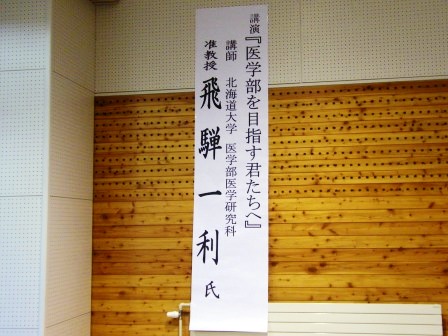 講演『医学部を目指す君たちへ』
講師 北海道大学 医学部医学研究科
准教授 飛騨一利 氏